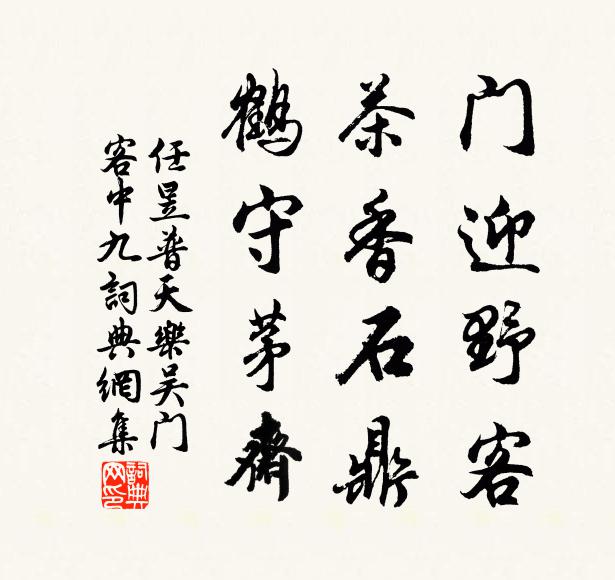 门迎野客
茶香石鼎
鹤守茅斋
任昱普天樂吴门
客中九詞典網集
詞典网印